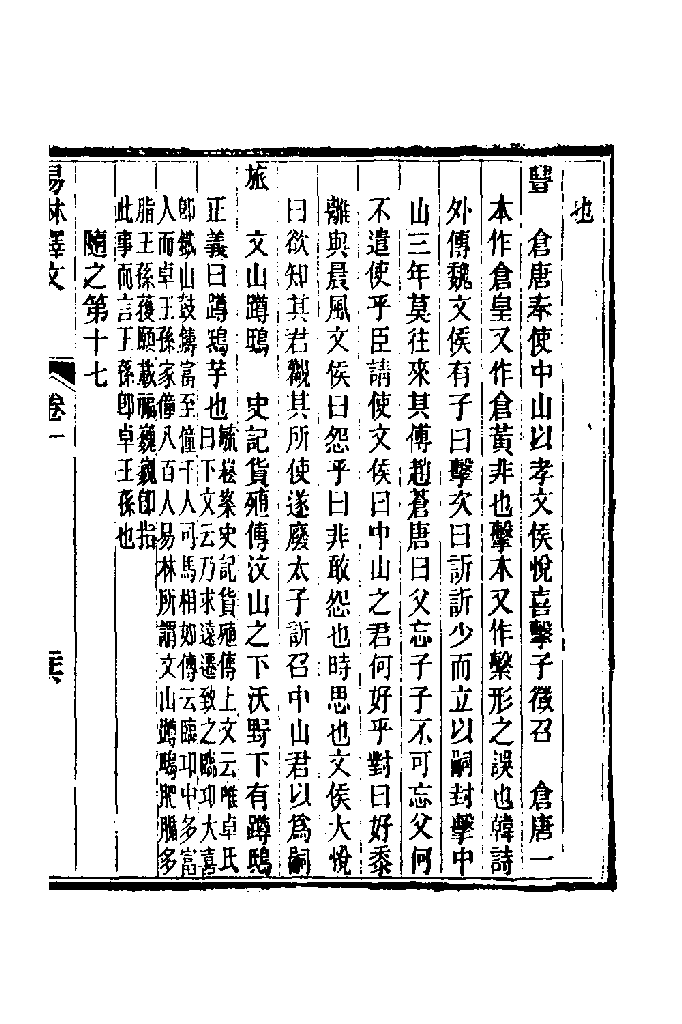 也
豐　倉唐奉使中山以孝文侯悅喜擊子徵召　倉唐一
本作倉皇又作倉黃非也擊本又作繫形之誤也韓詩
外傳魏文侯有子曰擊次曰訢訢少而立以嗣封擊中
山三年莫往來其傅趙蒼唐曰父忘子子不可忘父何
不遣使乎臣請使文侯曰中山之君何好乎對曰好黍
離與晨風文侯曰怨乎曰非敢怨也時思也文侯大悅
曰欲知其君觀其所使遂廢太子訢召中山君以爲嗣
旅　文山蹲鴟　史記貨殖傳汶山之下沃野下有蹲鴟
正義曰蹲鴟芋也毓崧案史記貨殖傳上文云唯卓氏
曰下文云乃求遠遷致之臨邛大喜
卽鐵山鼓鑄富至僮千人司馬相如傳云臨邛中多富
人而卓王孫家僮八百人易林所謂文山蹲鴟肥腯多
脂王孫獲願載福巍巍卽指
此事而言王孫卽卓王孫也
隨之第十七
易林釋文
卷一